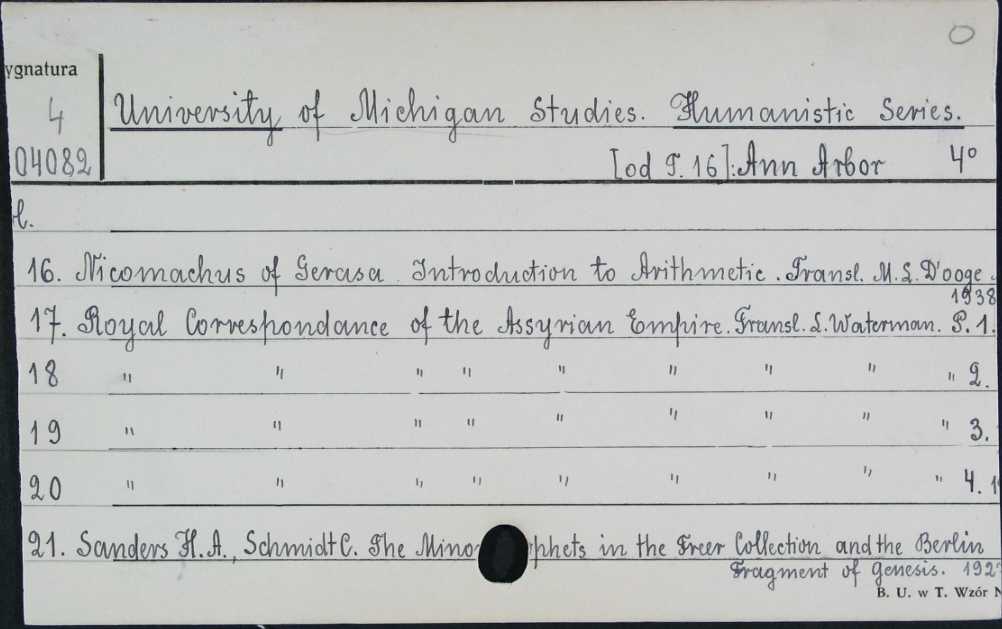 0
ygnatura
4
04082
University of Michigan Studies. Humanistic Series.
[od T. 16]: Ann Arbor 4°
t.
16. Nicomachus of Gerasa. Introduction to Arithmetic. Transl. M. L. D'ooge.
1938
17. Royal Correspondance of the Assyrian Empire. Transl. L. Waterman. P. 1.
18 " " " " " " " " " 2.
19 " " " " " " " " " 3.
20 " " " " " " " " " 4. 1
21. Sanders H. A., Schmidt C. The Mino phets in the Freer Collection and the Berlin
Fragment of Genesis. 192
B. U. w T. Wzór N